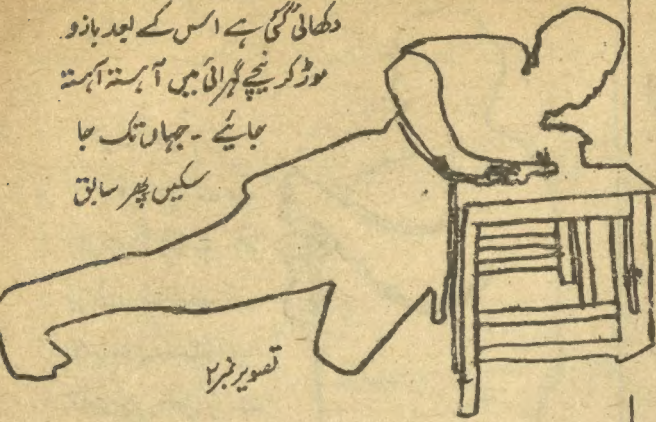 دکھائی گئی ہے اس کے بعد بازو
موڑ کر نیچے گہرائی میں آہستہ آہستہ
جایئے - جہاں تک جا
سکیں پھر سابق
تصویر نمبر ۲